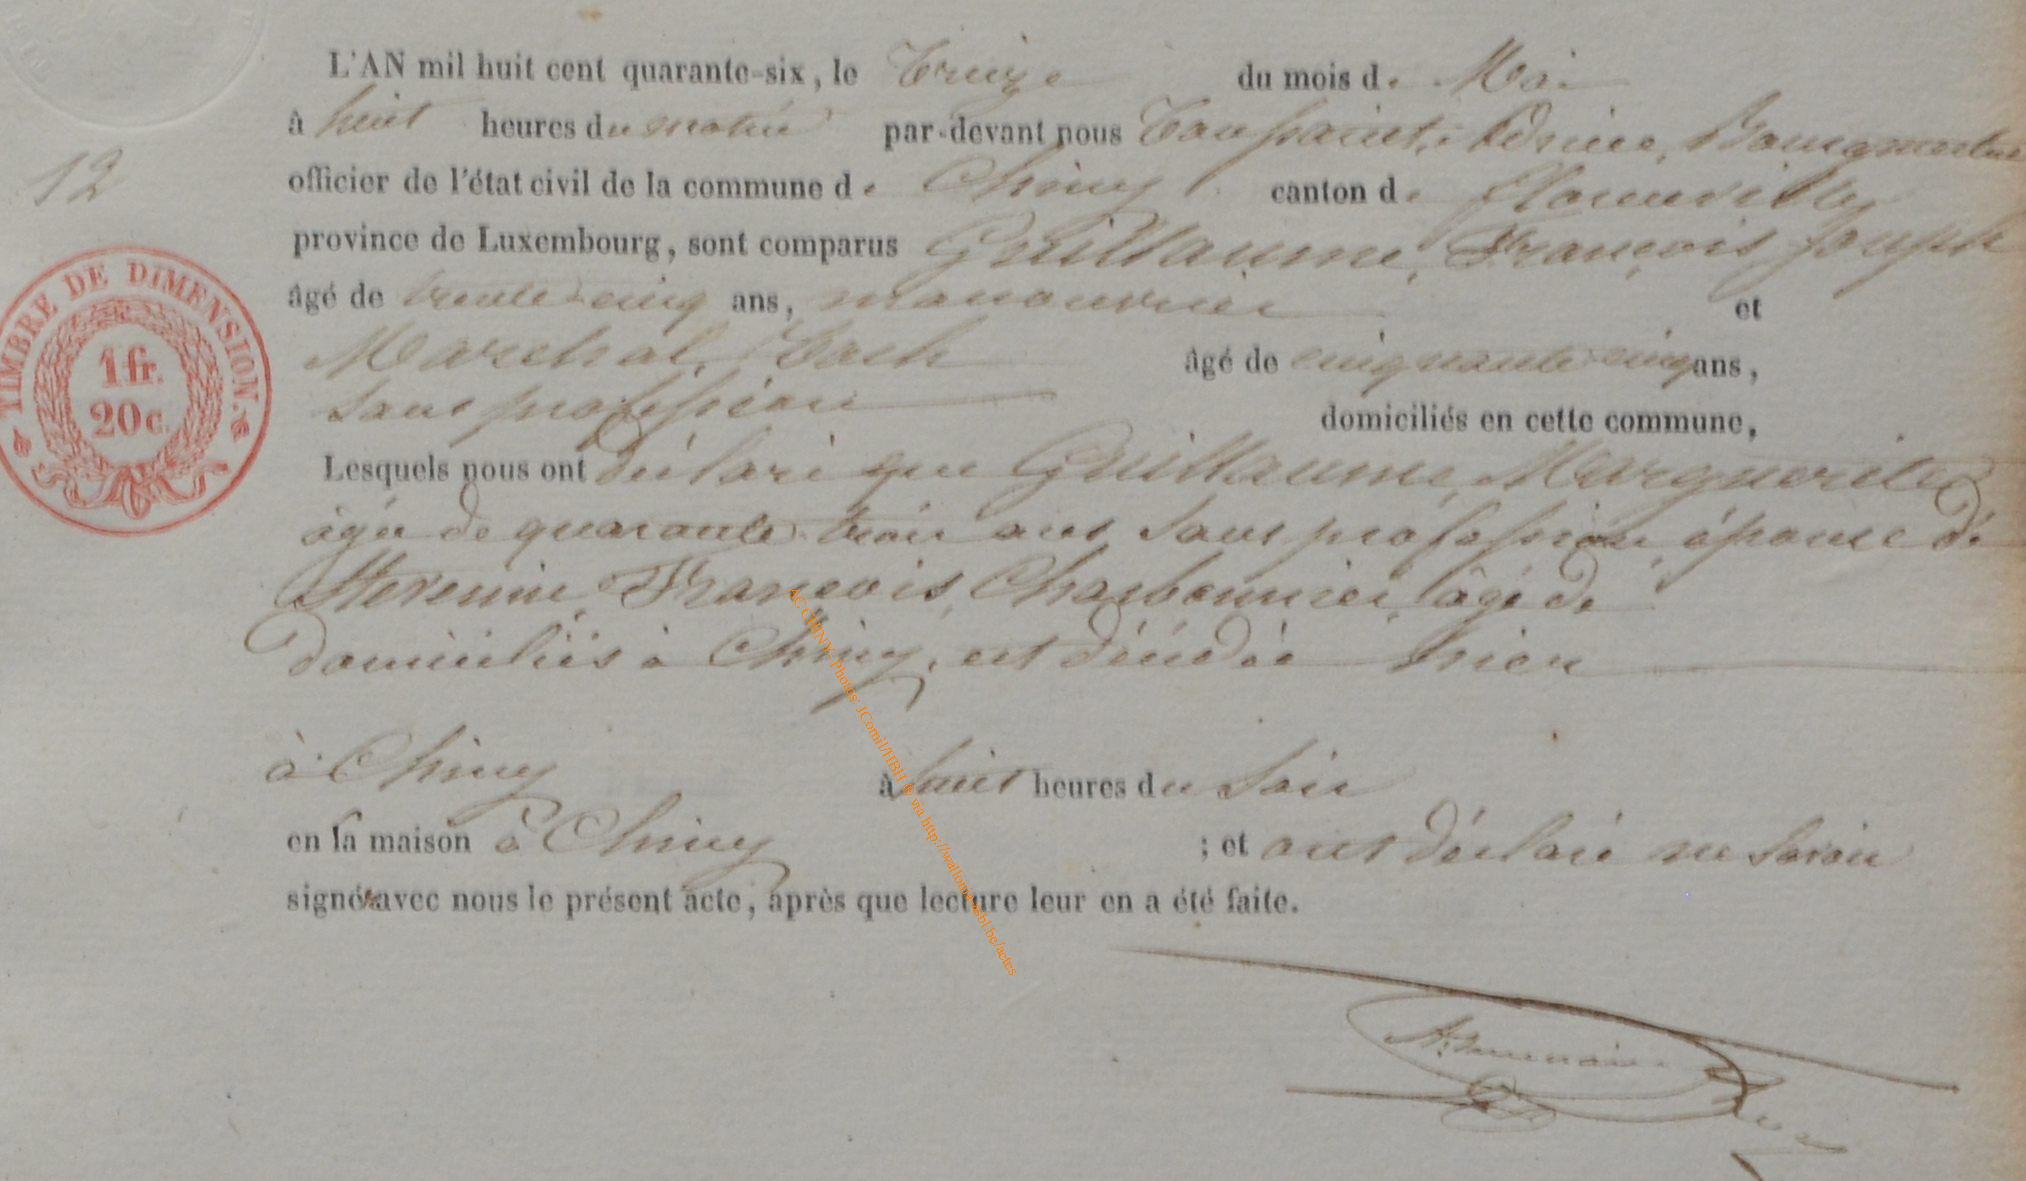 L'AN mil huit cent quarante-six, le treize du mois de Mai
à huit heures du matin par-devant nous Toussaint, Bourgmestre
officier de l'état civil de la commune de Chiny canton de florenville
province de Luxembourg, sont comparus Guillaume, François joseph
âgé de trente-cinq ans, manouvrier et
Marchal, âgé de cinquante cinq ans,
sans profession domiciliés en cette commune,
Lesquels nous ont déclaré que Guillaume, Marguerite
agée de quarante-trois ans sans profession, épouse de
François, Charbonnier, âgé de
domiciliés à Chiny, est décédée hier
à Chiny à huit heures du soir
en sa maison à Chiny ; et ont déclaré ne savoir
signé avec nous le présent acte, après que lecture leur en a été faite.
12
TIMBRE DE DIMENSION.
1 fr.
20 c.
AC CHINY. Photos JCornil/HBH & via http://wallonia-asbl.be/actes